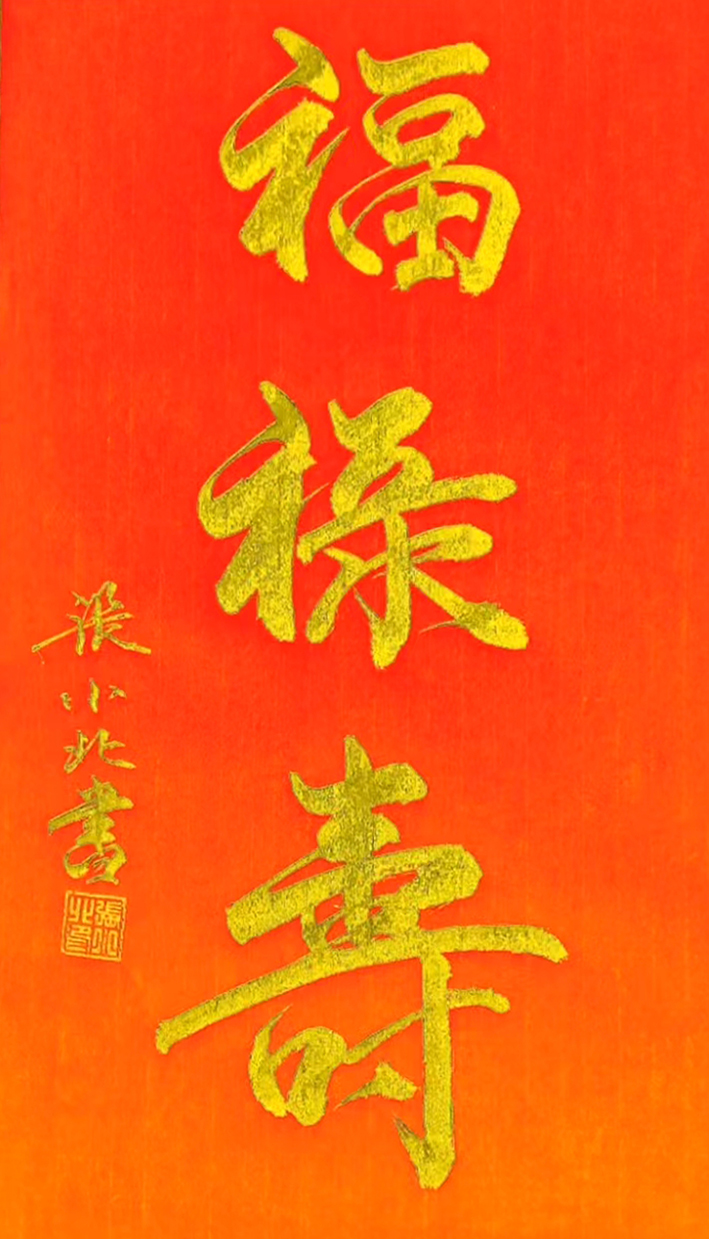 福祿壽
張小北書
張小北印